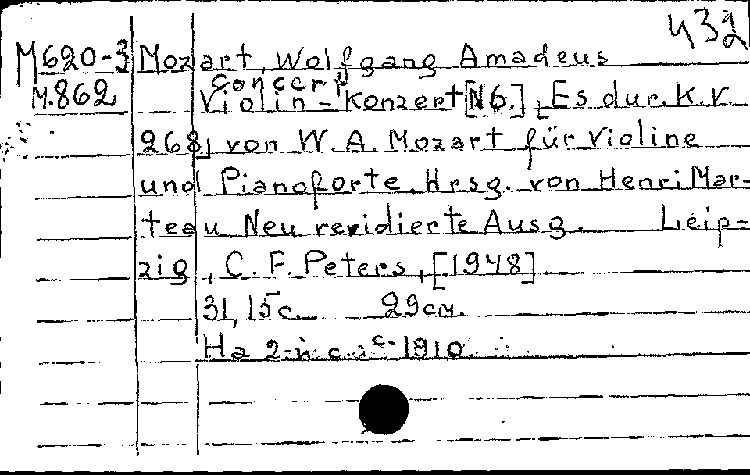 432
M620-3 Mozart, Wolfgang Amadeus
Concert
M.862 Violin-Konzert [N6.], Es dur. K.V.
268, von W. A. Mozart für Violine
und Pianoforte. Hrsg. von Henri Mar-
teau Neu revidierte Ausg. Leip-
zig, C. F. Peters, [1948]
31, 15 c. 29 см.
На 2-й с. c. 1910